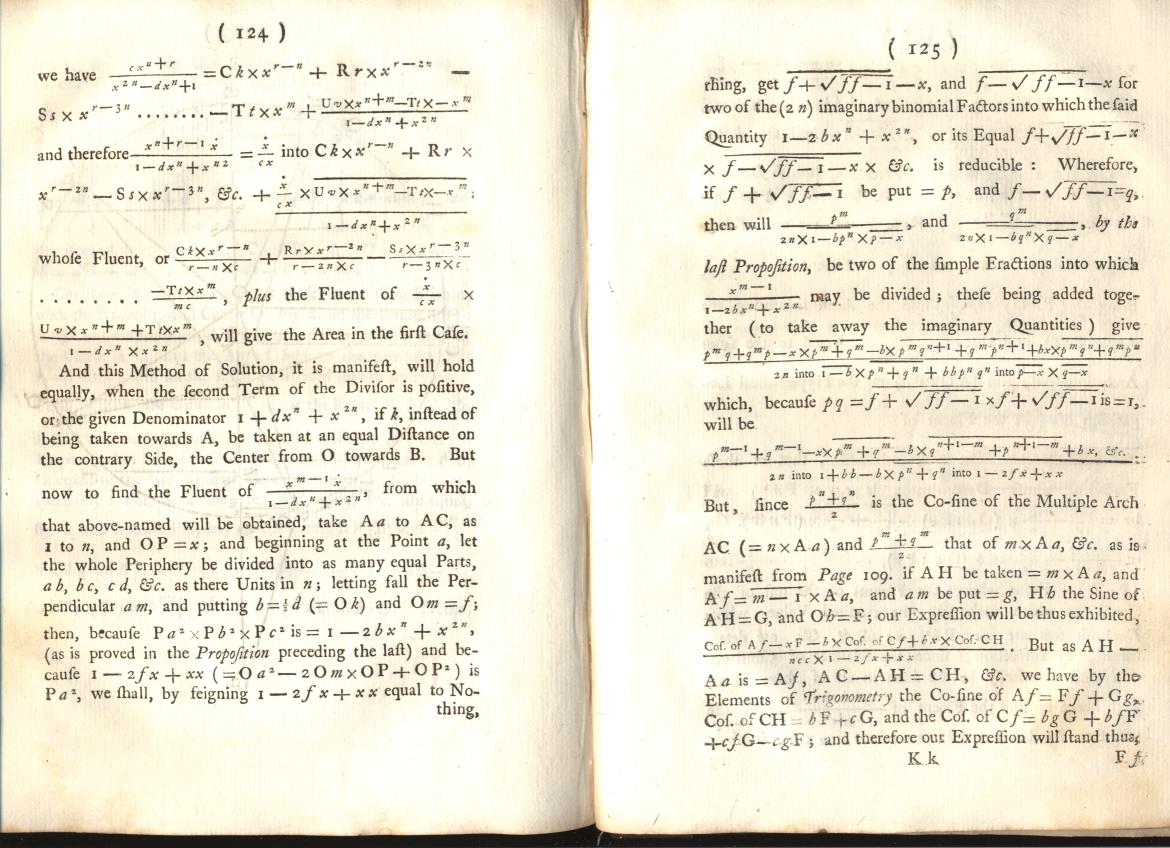 ( 124 )
we have cxⁿ⁺ʳ / x²ⁿ—dxⁿ+1 = Ck×xʳ⁻ⁿ + Rr×xʳ⁻²ⁿ —
Ss × xʳ⁻³ⁿ ........ — Tt×xᵐ + Uv×xⁿ⁺ᵐ—Tt×—xᵐ / 1—dxⁿ+x²ⁿ
and therefore xⁿ⁺ʳ⁻¹ẋ / 1—dxⁿ+xⁿ² = ẋ/cx into Ck×xʳ⁻ⁿ + Rr ×
xʳ⁻²ⁿ — Ss×xʳ⁻³ⁿ, &c. + ẋ/cx × Uv×xⁿ⁺ᵐ—Tt×—xᵐ / 1—dxⁿ+x²ⁿ ;
whoſe Fluent, or Ck×xʳ⁻ⁿ / r—n×c + Rr×xʳ⁻²ⁿ / r—2n×c — Ss×xʳ⁻³ⁿ / r—3n×c
........ —Tt×xᵐ / mc , plus the Fluent of ẋ/cx ×
Uv×xⁿ⁺ᵐ+Tt×xᵐ / 1—dxⁿ×x²ⁿ , will give the Area in the firſt Caſe.
And this Method of Solution, it is manifeſt, will hold
equally, when the ſecond Term of the Diviſor is poſitive,
or the given Denominator 1+dxⁿ + x²ⁿ, if k, inſtead of
being taken towards A, be taken at an equal Diſtance on
the contrary Side, the Center from O towards B. But
now to find the Fluent of xᵐ⁻¹ẋ / 1—dxⁿ+x²ⁿ, from which
that above-named will be obtained, take Aa to AC, as
1 to n, and OP=x; and beginning at the Point a, let
the whole Periphery be divided into as many equal Parts,
ab, bc, cd, &c. as there Units in n; letting fall the Per-
pendicular am, and putting b=½d (=Ok) and Om=f;
then, becauſe Pa²×Pb²×Pc² is = 1—2bxⁿ + x²ⁿ,
(as is proved in the Propoſition preceding the laſt) and be-
cauſe 1—2fx+xx (=Oa²—2Om×OP+OP²) is
Pa², we ſhall, by feigning 1—2fx+xx equal to No-
thing,
( 125 )
thing, get f+√ff—1—x, and f—√ff—1—x for
two of the (2 n) imaginary binomial Factors into which the ſaid
Quantity 1—2bxⁿ + x²ⁿ, or its Equal f+√ff—1—x
× f—√ff—1—x × &c. is reducible : Wherefore,
if f + √ff—1 be put = p, and f—√ff—1=q,
then will pᵐ / 2n×1—bpⁿ×p—x, and qᵐ / 2n×1—bqⁿ×q—x, by the
laſt Propoſition, be two of the ſimple Fractions into which
xᵐ⁻¹ / 1—2bxⁿ+x²ⁿ may be divided; theſe being added toge-
ther (to take away the imaginary Quantities) give
pᵐq+qᵐp—x×pᵐ+qᵐ—b×pᵐqⁿ⁺¹+qᵐpⁿ⁺¹+bx×pᵐqⁿ+qᵐpⁿ / 2n into 1—b×pⁿ+qⁿ + bbpⁿqⁿ into p—x × q—x
which, becauſe pq =f+√ff—1 ×f+√ff—1 is=1,
will be
pᵐ⁻¹+qᵐ⁻¹—x×pᵐ+qᵐ—b×qⁿ⁺¹⁻ᵐ+pⁿ⁺¹⁻ᵐ+bx, &c. / 2n into 1+bb—b×pⁿ+qⁿ into 1—2fx+xx
But, ſince pⁿ+qⁿ / 2 is the Co-ſine of the Multiple Arch
AC (=n×Aa) and pᵐ+qᵐ / 2 that of m×Aa, &c. as is
manifeſt from Page 109. if AH be taken = m×Aa, and
Af=m—1×Aa, and am be put =g, Hh the Sine of
AH=G, and Oh=F; our Expreſſion will be thus exhibited,
Coſ. of Af—xF—b×Coſ. of Cf+bx×Coſ. CH / ncc×1—2fx+xx . But as AH—
Aa is = Af, AC—AH=CH, &c. we have by the
Elements of Trigonometry the Co-ſine of Af=Ff+Gg,
Coſ. of CH = bF+cG, and the Coſ. of Cf=bgG+bfF
+cfG—cgF; and therefore our Expreſſion will ſtand thus,
K k
F f